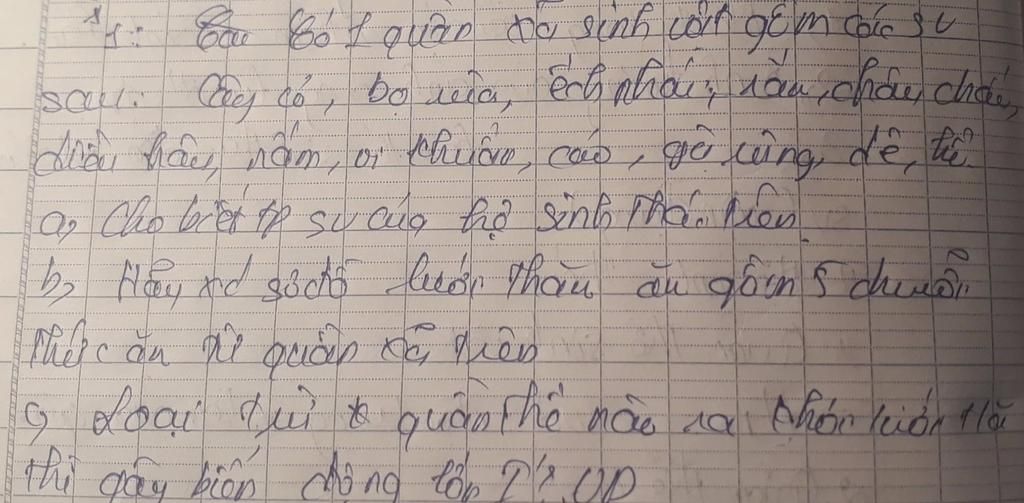 *1: Có 1 quần xã sinh vật gồm các SV
sau: Cây cỏ, bọ rùa, ếch nhái, rắn, châu chấu,
diều hâu, nấm, vi khuẩn, cáo, gà rừng, dê, hổ
a, Cho biết tp SV của hệ sinh thái trên
b, Hãy xd sơ đồ lưới thức ăn gồm 5 chuỗi
thức ăn từ quần xã trên
c, Loại trừ quần thể nào ra khỏi lưới t/ă
thì gây biến động lớn